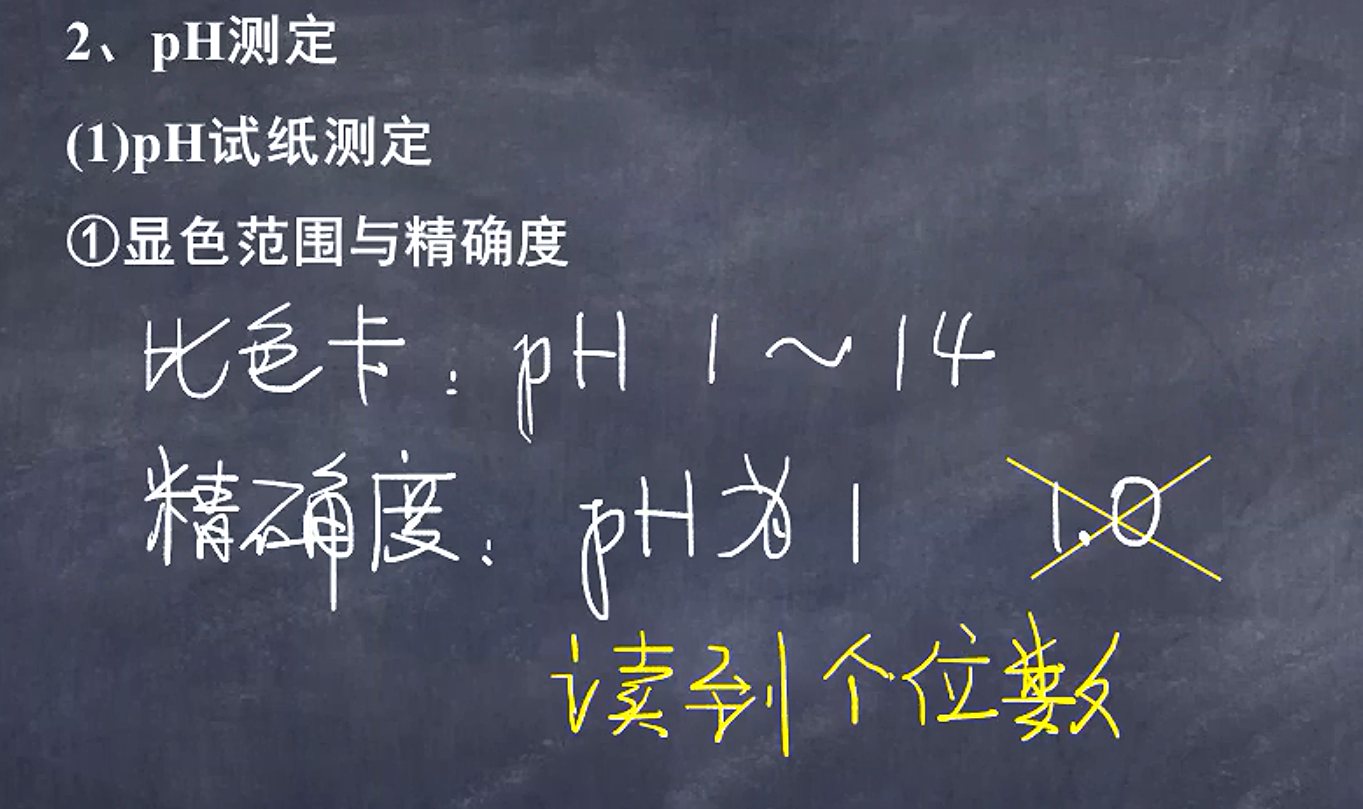 2、pH测定
(1)pH试纸测定
①显色范围与精确度
比色卡：pH 1～14
精确度：pH为1 1.0
读到个位数